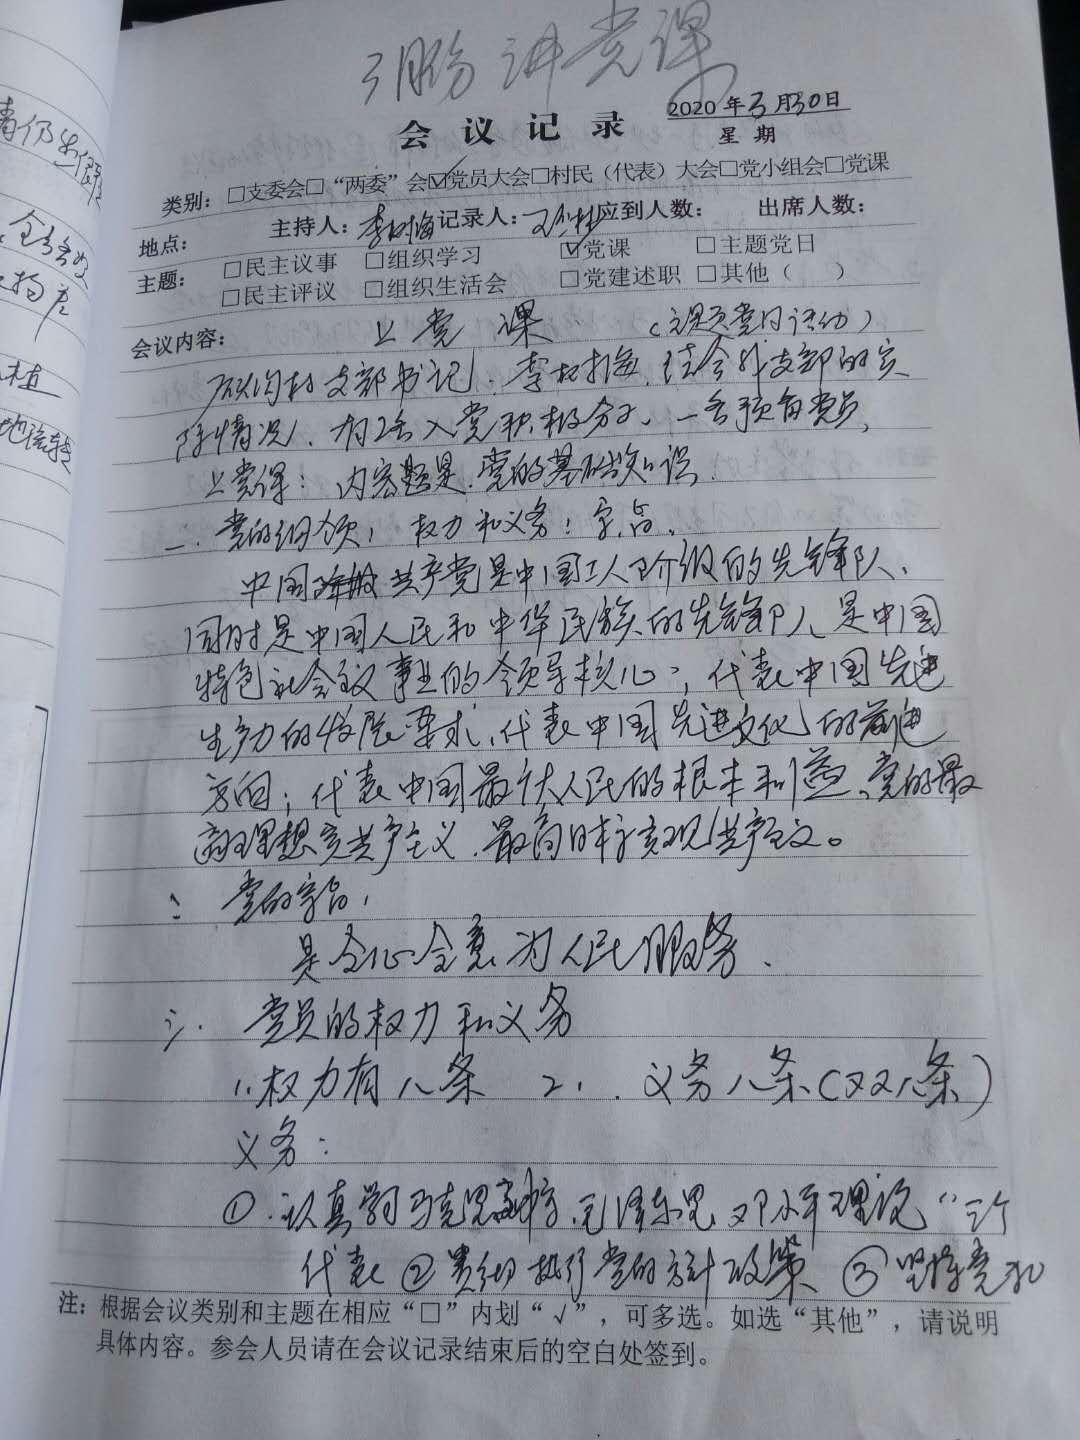 3月份讲党课
2020年3月30日
会议记录
星期
类别：□支委会□“两委”会☑党员大会□村民（代表）大会□党小组会□党课
地点： 主持人：李树海 记录人： 应到人数： 出席人数：
主题： □民主议事 □组织学习 ☑党课 □主题党日
□民主评议 □组织生活会 □党建述职 □其他（ ）
会议内容： 上党课 （主题党日活动）
村支部书记、李树海、结合外支部的实
际情况、为2名入党积极分子、一名预备党员、
上党课：内容题是、党的基础知识、
一、党的纲领，权力和义务：宗旨、
中国共产党是中国工人阶级的先锋队、
同时是中国人民和中华民族的先锋队、是中国
特色社会主义事业的领导核心，代表中国先进
生产力的发展要求、代表中国先进文化的前进
方向；代表中国最广大人民的根本利益、党的最
高理想实共产主义、最高目标实现共产主义。
二 党的宗旨，
是全心全意为人民服务、
三、党员的权力和义务
1、权力有八条 2、义务八条（又又八条）
义务：
①、认真学习马克思、毛泽东思、邓小平理论“三个
代表②贯彻执行党的方针政策③坚持党和
注：根据会议类别和主题在相应“□”内划“√”，可多选。如选“其他”，请说明
具体内容。参会人员请在会议记录结束后的空白处签到。